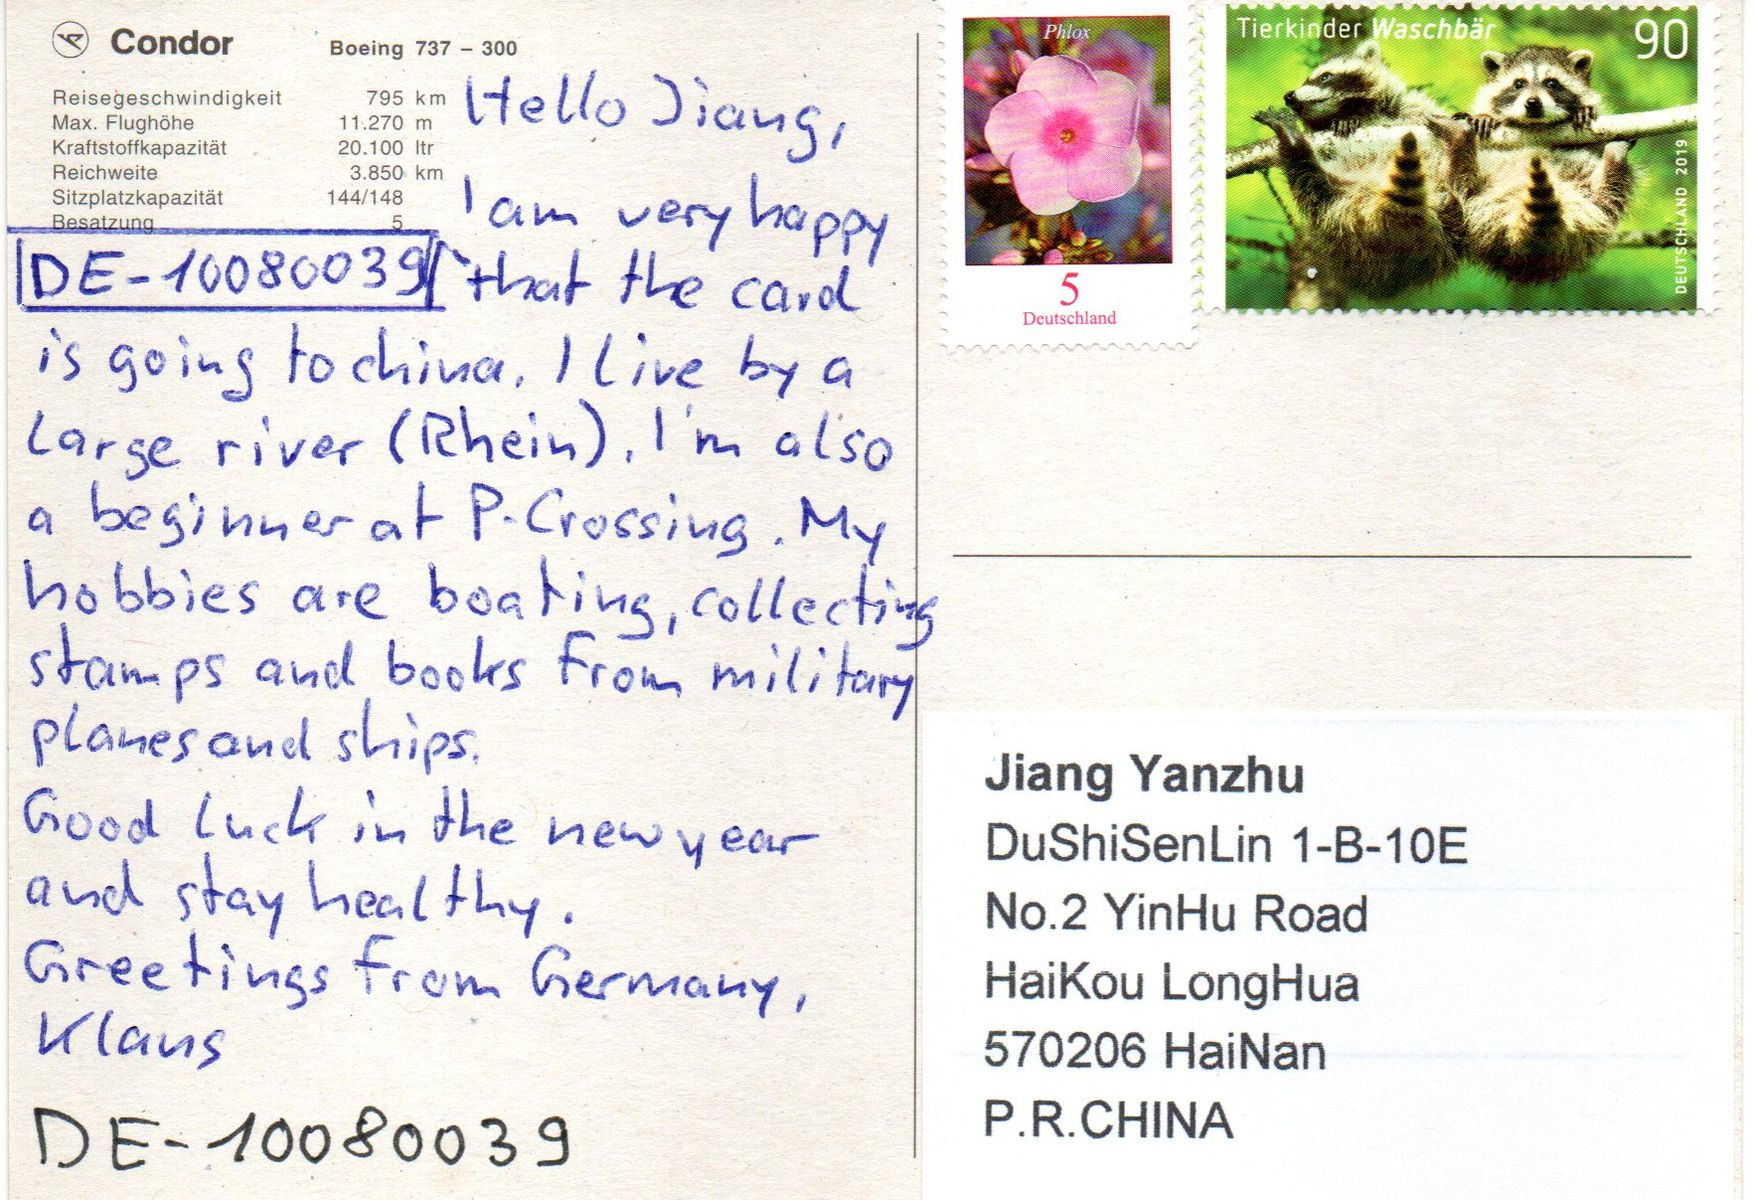 Condor
Boeing 737 – 300
Reisegeschwindigkeit 795 km
Max. Flughöhe 11.270 m
Kraftstoffkapazität 20.100 ltr
Reichweite 3.850 km
Sitzplatzkapazität 144/148
Besatzung 5
DE-10080039
Hello Jiang,
I am very happy
that the card
is going to china. I live by a
large river (Rhein). I'm also
a beginner at P-Crossing. My
hobbies are boating, collecting
stamps and books from military
planes and ships.
Good luck in the new year
and stay healthy.
Greetings from Germany,
Klaus
DE-10080039
Phlox
5
Deutschland
Tierkinder Waschbär 90
DEUTSCHLAND 2019
Jiang Yanzhu
DuShiSenLin 1-B-10E
No.2 YinHu Road
HaiKou LongHua
570206 HaiNan
P.R.CHINA